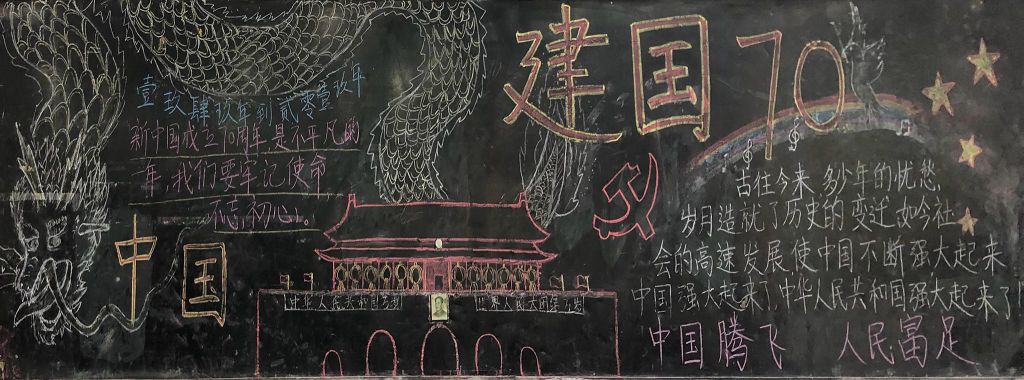 壹玖肆玖年到贰零壹玖年
新中国成立70周年是不平凡的
一年,我们要牢记使命
不忘初心。
中国
建国70
古往今来 多少年的忧愁
岁月造就了历史的变迁 如今社
会的高速发展使中国不断强大起来
中国强大起来了 中华人民共和国强大起来了
中国腾飞 人民富足